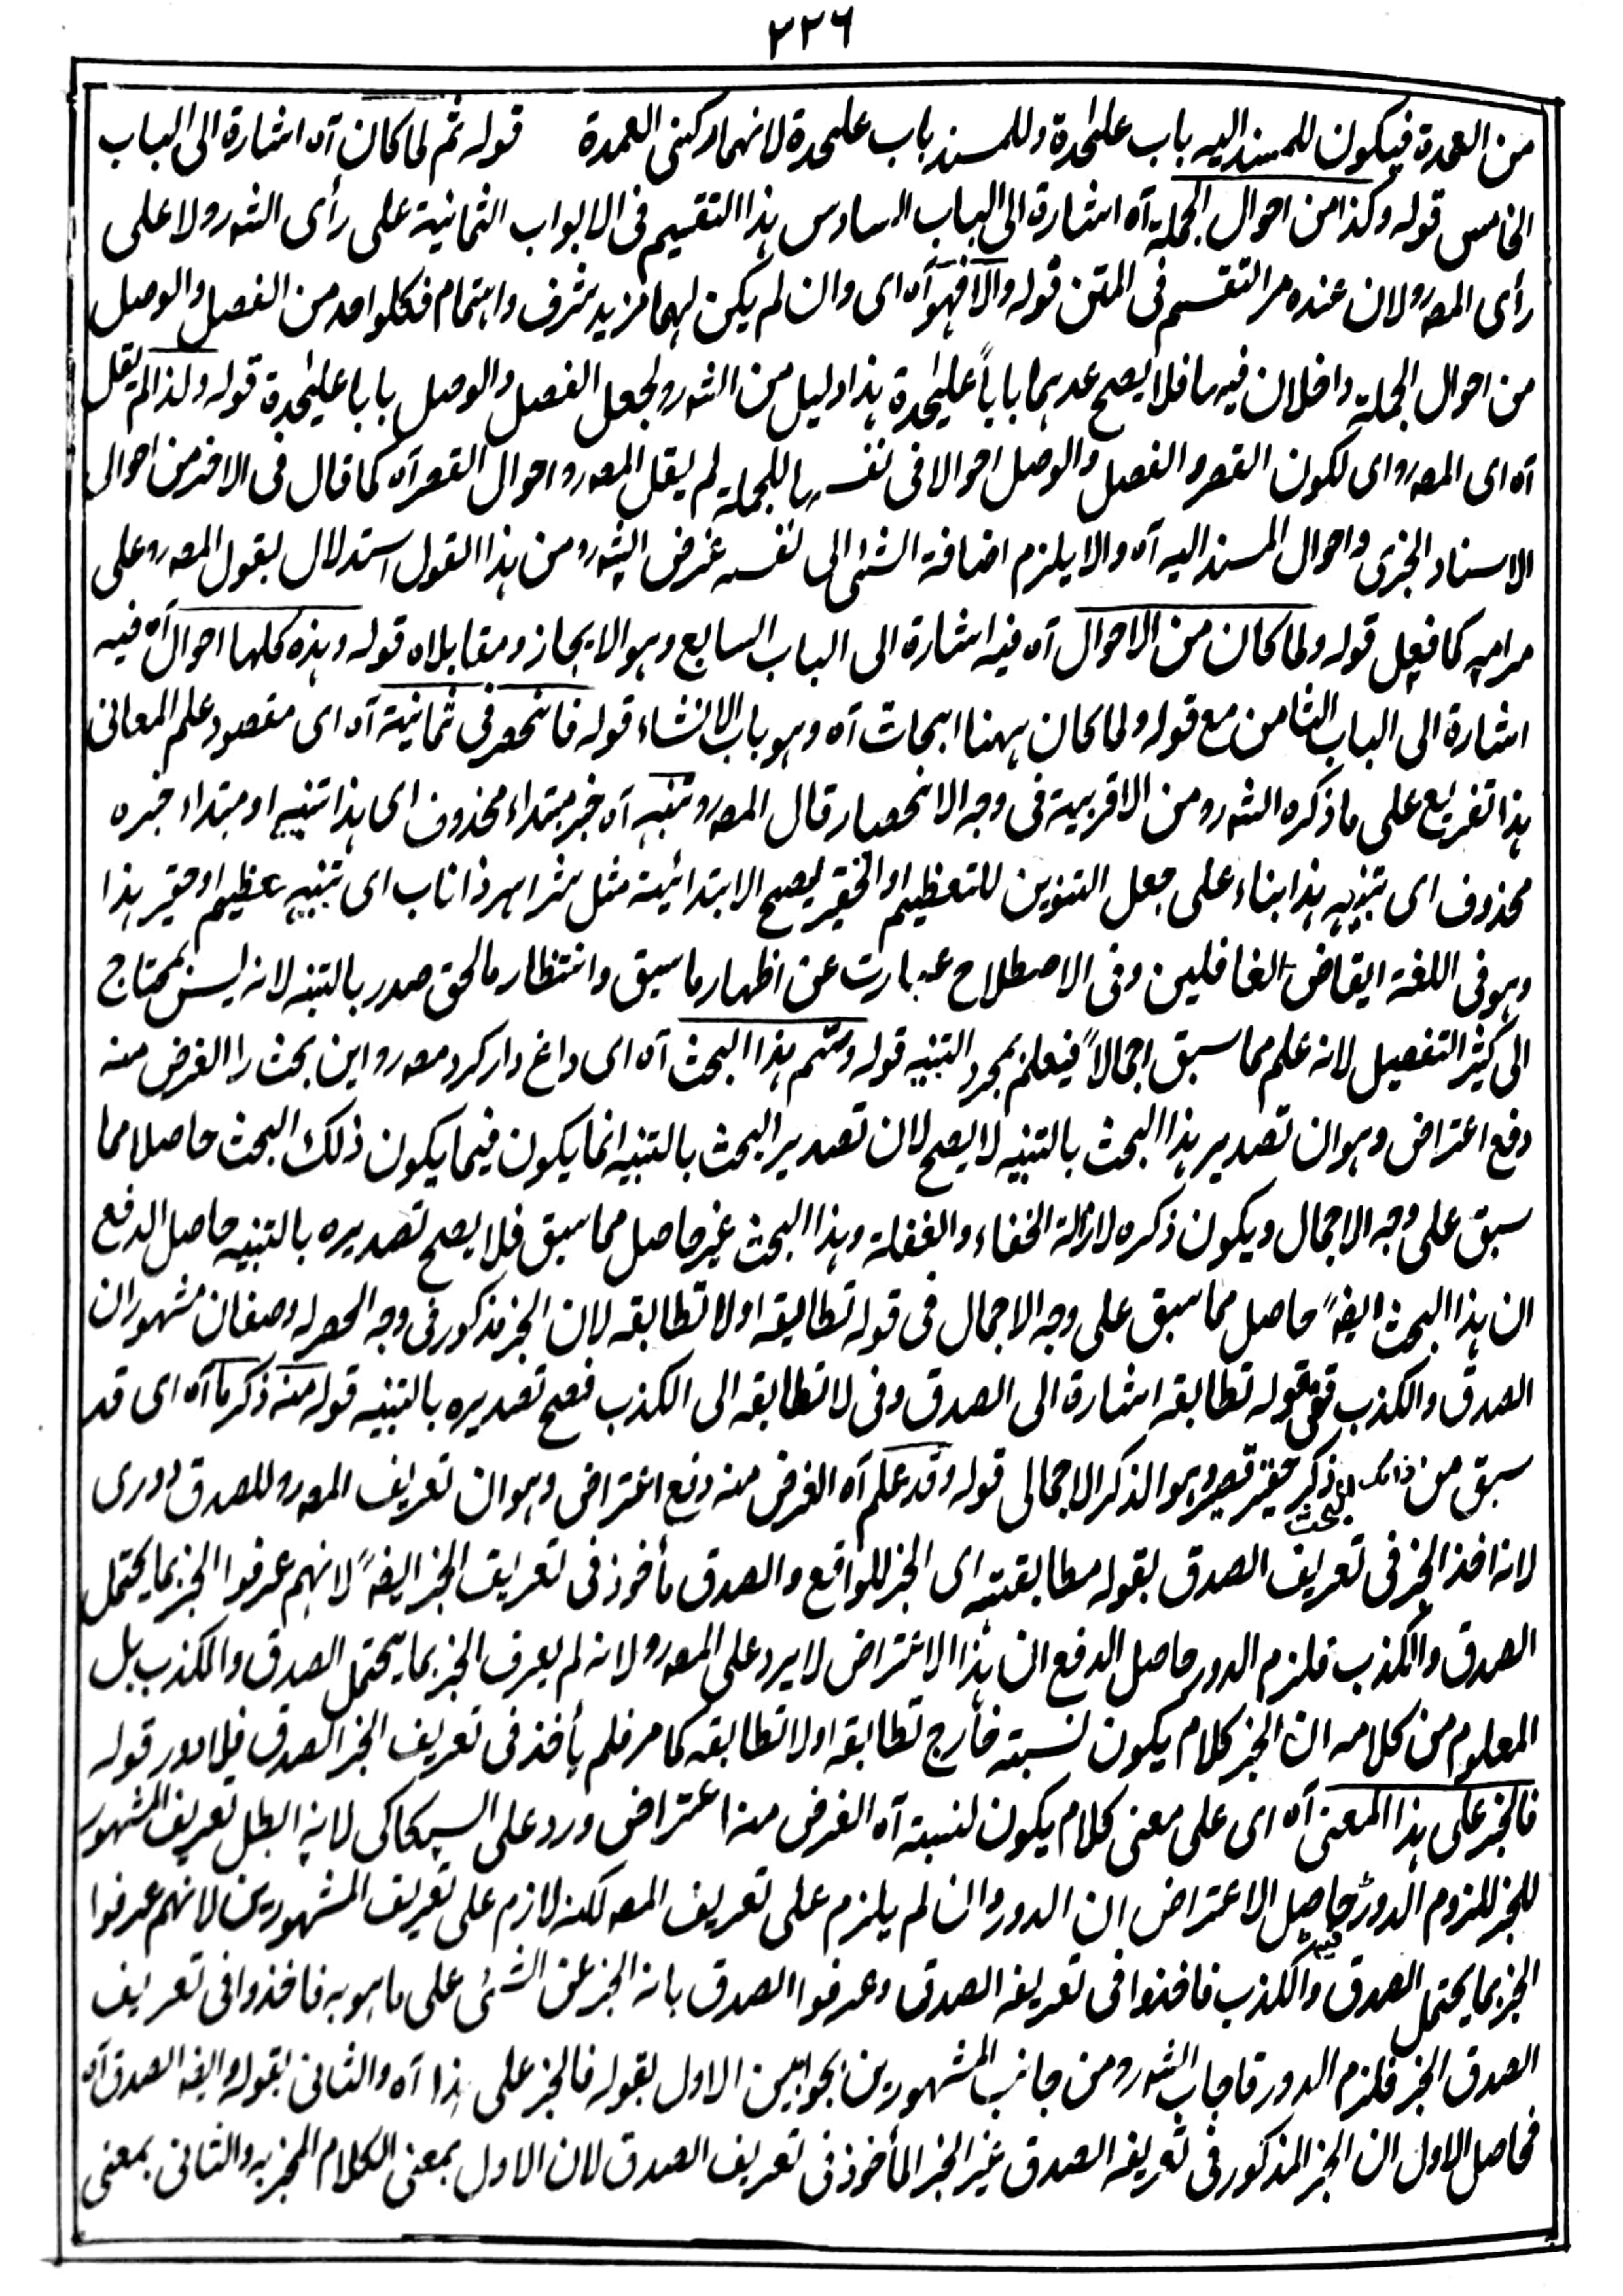 ٢٢٦
من العمدة فيكون للمسند اليه باب عليٰحدة وللمسند باب عليٰحدة لانهما ركنى العمدة قوله ثم لما كان آه اشارة الى الباب
الخامس قوله وكذا من احوال الجملة آه اشارة الى الباب السادس هذا التقسيم فى الابواب الثمانية على رأى الشهرو لا على
رأى المصرو لان عنده مر التقسيم فى المتن قوله والا فهو آه اى وان لم يكن لهما مزيد شرف واهتمام فكلواحد من الفصل والوصل
من احوال الجملة داخلان فيها فلا يصح عدهما باباً عليٰحدة هذا دليل من الشهرو لجعل الفصل والوصل بابا عليٰحدة قوله ولذا لم يقل
آه اى المصرو اى لكون القصر والفصل والوصل احوالا فى نفسها للجملة لم يقل المصرو احوال القصر آه كما قال فى الاخر من احوال
الاسناد الخبرى واحوال المسند اليه آه والا يلزم اضافة الشئ الى نفسه غرض الشهرو من هذا القول استدلال بقول المصرو على
مرامه كما فعل قوله ولما كان من الاحوال آه فيه اشارة الى الباب السابع وهو الايجاز ومقابلاه قوله وهذه كلها احوال آه فيه
اشارة الى الباب الثامن مع قوله ولما كان ههنا ابحاث آه وهو باب الانشاء قوله فانحصر فى ثمانية آه اى مقصود علم المعانى
هذا تفريع على ما ذكره الشهرو من الاقربية فى وجه الانحصار قال المصرو تنبيه آه خبر مبتداء محذوف اى هذا تنبيه او مبتداء خبره
محذوف اى تنبيه هذا بناء على جعل التنوين للتعظيم او التحقير ليصح الابتدائية مثل شر اهر ذا ناب اى تنبيه عظيم او حقير هذا
وهو فى اللغة ايقاض الغافلين وفى الاصطلاح عبارت عن اظهار ما سبق وانتظار ما لحق صدر بالتنبه لانه ليس بمحتاج
الى كثير التفصيل لانه علم مما سبق اجمالاً فيعلم بمجرد التنبيه قوله وسم هذا البحث آه اى داغ دار كرد مصرو اين بحث را الغرض منه
دفع اعتراض وهو ان تصدير هذا البحث بالتنبيه لا يصح لان تصدير البحث بالتنبيه انما يكون فيما يكون ذلك البحث حاصلا مما
سبق على وجه الاجمال ويكون ذكره لازالة الخفاء والغفلة وهذا البحث غير حاصل مما سبق فلا يصح تصديره بالتنبيه حاصل الدفع
ان هذا البحث ايضاً حاصل مما سبق على وجه الاجمال فى قوله تطابقه او لا تطابقه لان الخبر مذكور فى وجه الحصر له وصفان مشهوران
الصدق والكذب ففى قوله تطابقه اشارة الى الصدق وفى لا تطابقه الى الكذب فصح تصديره بالتنبيه قوله منه ذكر ما آه اى قد
سبق من ذلك البحث ذكر حقير قصير وهو الذكر الاجمالى قوله وقد علم آه الغرض منه دفع اعتراض وهو ان تعريف المصرو للصدق دورى
لانه اخذ الخبر فى تعريف الصدق بقوله مطابقيته اى الخبر للواقع والصدق مأخوذ فى تعريف الخبر ايضاً لانهم عرفوا الخبر بما يحتمل
الصدق والكذب فلزم الدور حاصل الدفع ان هذا الاعتراض لا يرد على المصرو لانه لم يعرف الخبر بما يحتمل الصدق والكذب بل
المعلوم من كلامه ان الخبر كلام يكون لنسبته خارج تطابقه او لا تطابقه كما مر فلم يأخذ فى تعريف الخبر الصدق فلا دور قوله
فالخبر على هذا المعنى آه اى على معنى كلام يكون لنسبته آه الغرض منه اعتراض ورد على السكاكى لانه ابطل تعريف المشهور
للخبر للزوم الدور فيه حاصل الاعتراض ان الدور وان لم يلزم على تعريف المصر لكنه لازم على تعريف المشهورين لانهم عرفوا
الخبر بما يحتمل الصدق والكذب فاخذوا فى تعريفه الصدق وعرفوا الصدق بانه الخبر عن الشئ على ما هو به فاخذوا فى تعريف
الصدق الخبر فلزم الدور فاجاب الشهرو من جانب المشهورين بجوابين الاول بقوله فالخبر على هذا آه والثانى بقوله وايضا الصدق آه
فحاصل الاول ان الخبر المذكور فى تعريفه الصدق غير الخبر المأخوذ فى تعريف الصدق لان الاول بمعنى الكلام المخبر به والثانى بمعنى